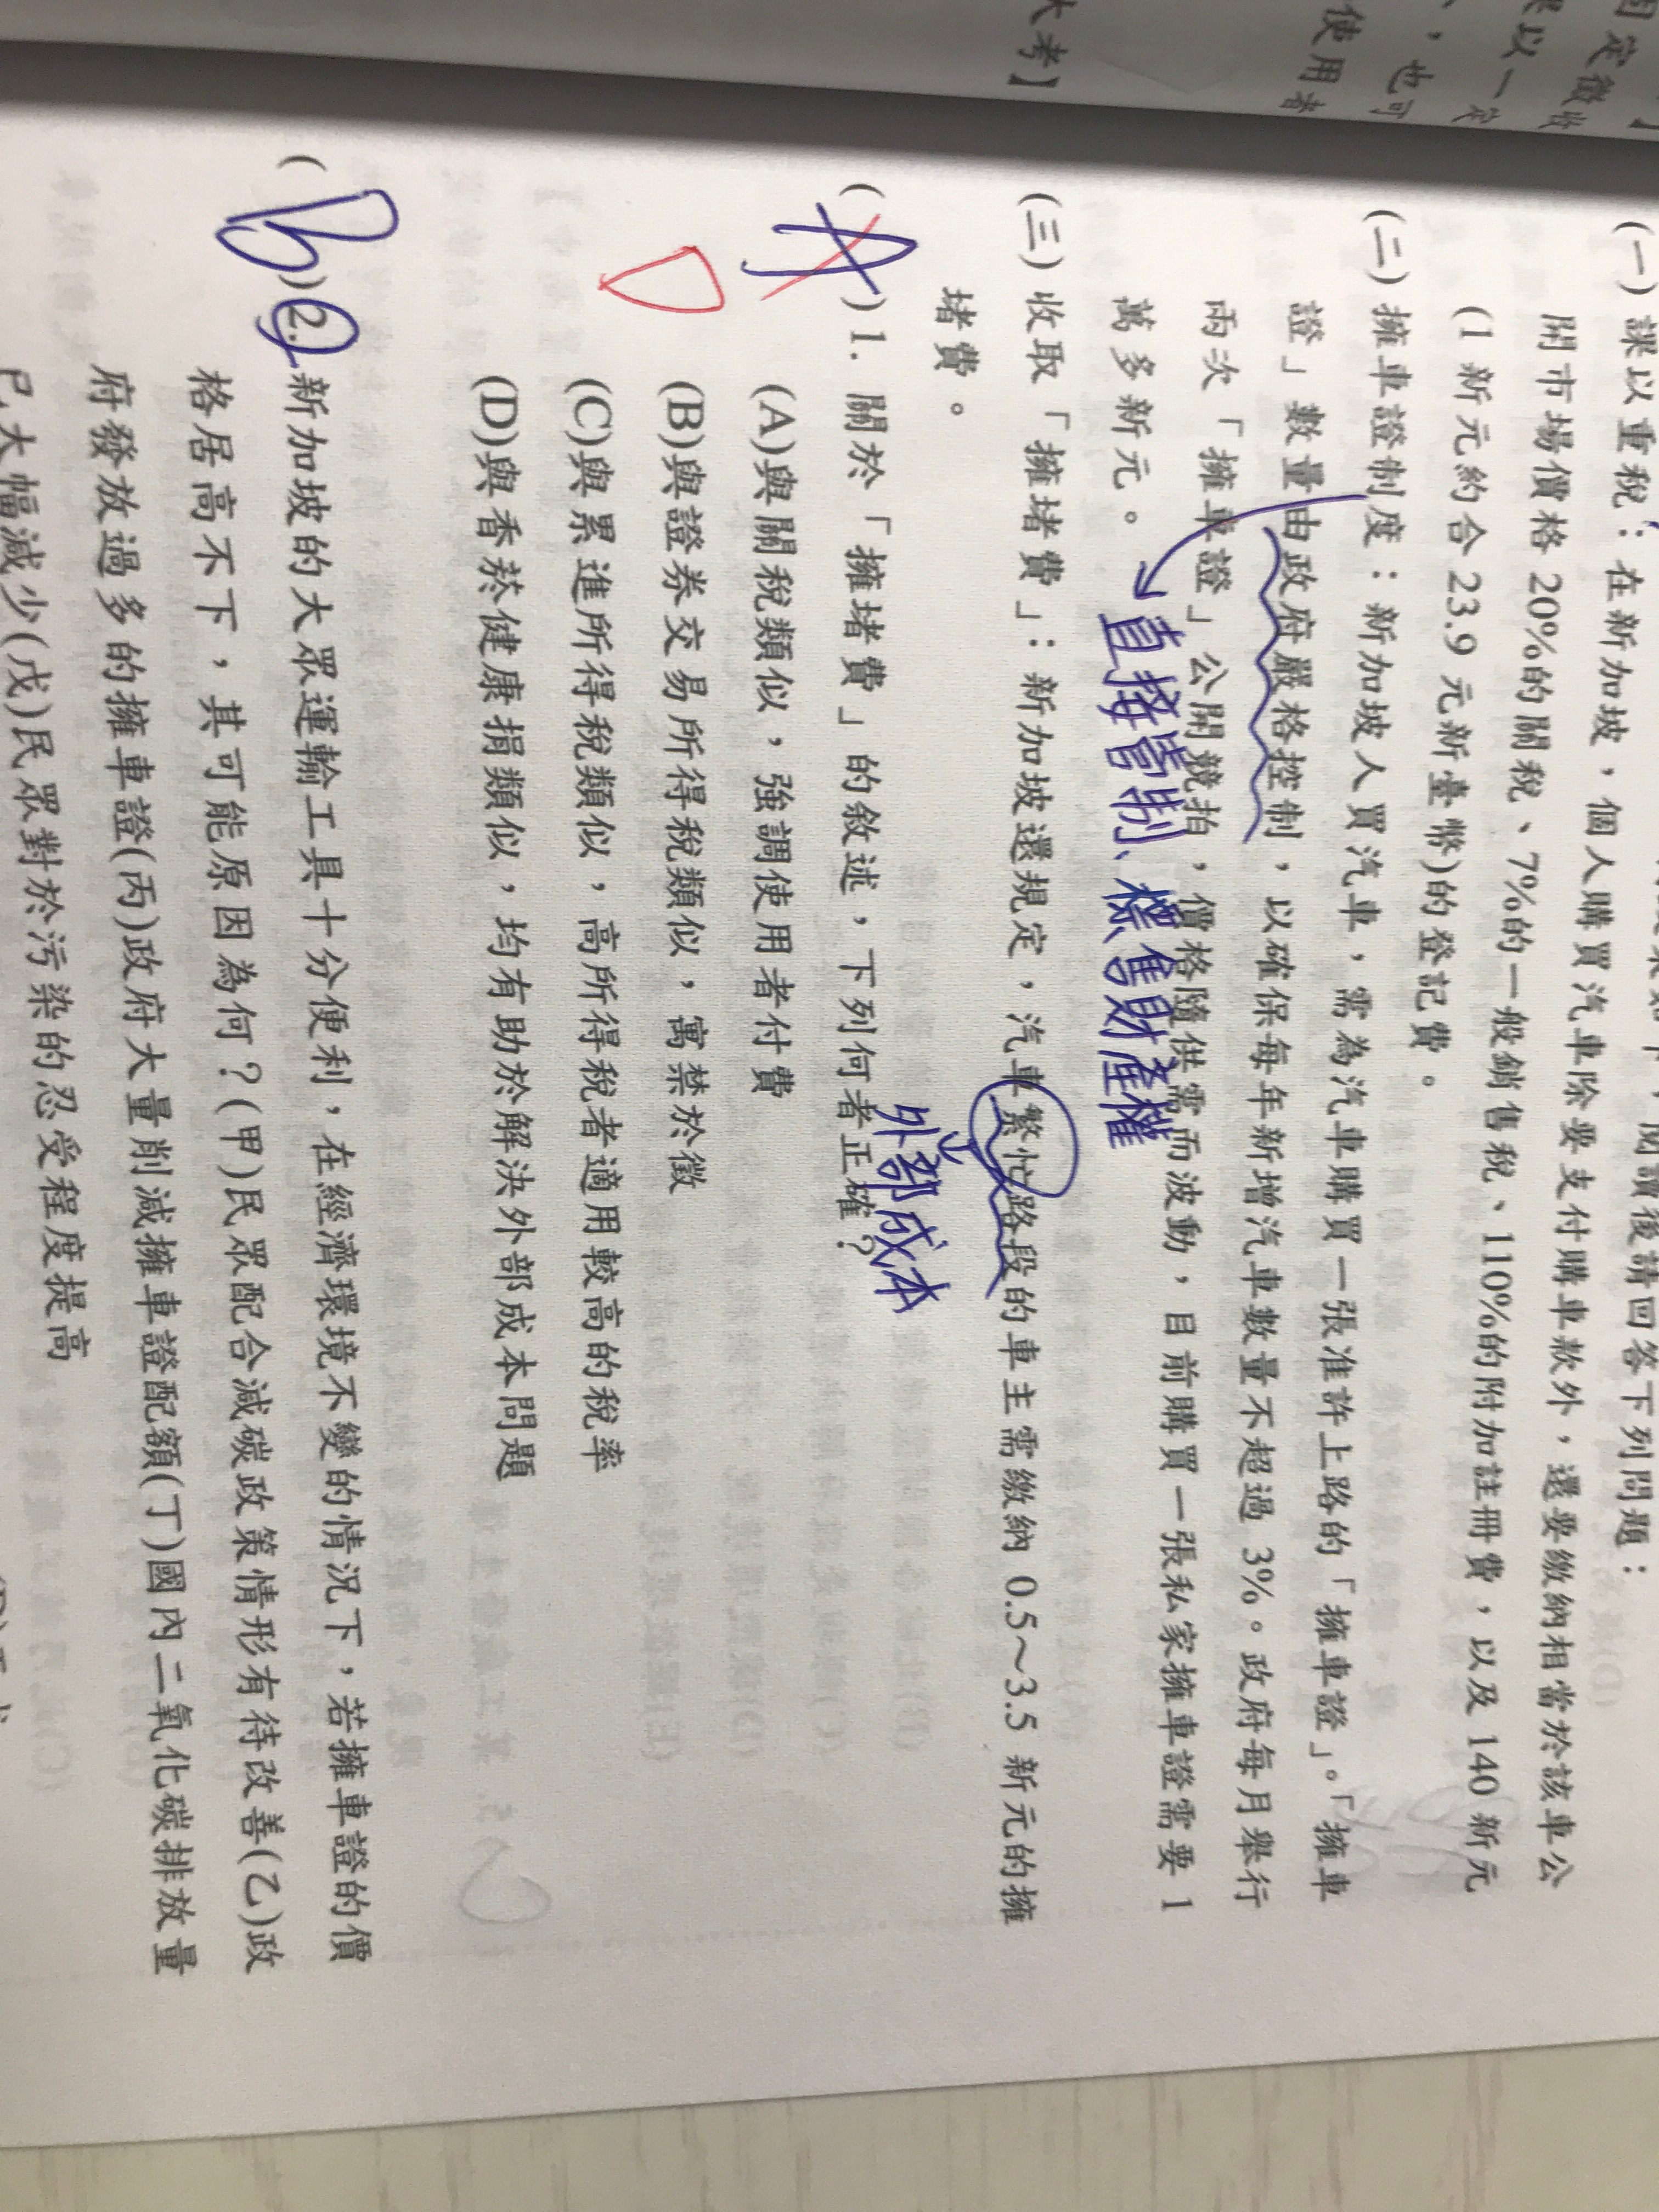 固定徵收
果以一定
，也可
使用者
大考】
閱讀後請回答下列問題：
(一)課以重稅：在新加坡，個人購買汽車除要支付購車款外，還要繳納相當於該車公
開市場價格 20%的關稅、7%的一般銷售稅、110%的附加註冊費，以及 140 新元
(1 新元約合 23.9 元新臺幣)的登記費。
(二)擁車證制度：新加坡人買汽車，需為汽車購買一張准許上路的「擁車證」。「擁車
證」數量由政府嚴格控制，以確保每年新增汽車數量不超過 3%。政府每月舉行
兩次「擁車證」公開競拍，價格隨供需而波動，目前購買一張私家擁車證需要 1
萬多新元。
直接管制、標售財產權
(三)收取「擁堵費」：新加坡還規定，汽車繁忙路段的車主需繳納 0.5～3.5 新元的擁
堵費。
外部成本
( A )1. 關於「擁堵費」的敘述，下列何者正確？
D
(A)與關稅類似，強調使用者付費
(B)與證券交易所得稅類似，寓禁於徵
(C)與累進所得稅類似，高所得稅者適用較高的稅率
(D)與香菸健康捐類似，均有助於解決外部成本問題
( B )2. 新加坡的大眾運輸工具十分便利，在經濟環境不變的情況下，若擁車證的價
格居高不下，其可能原因為何？(甲)民眾配合減碳政策情形有待改善(乙)政
府發放過多的擁車證(丙)政府大量削減擁車證配額(丁)國內二氧化碳排放量
已大幅減少(戊)民眾對於污染的忍受程度提高